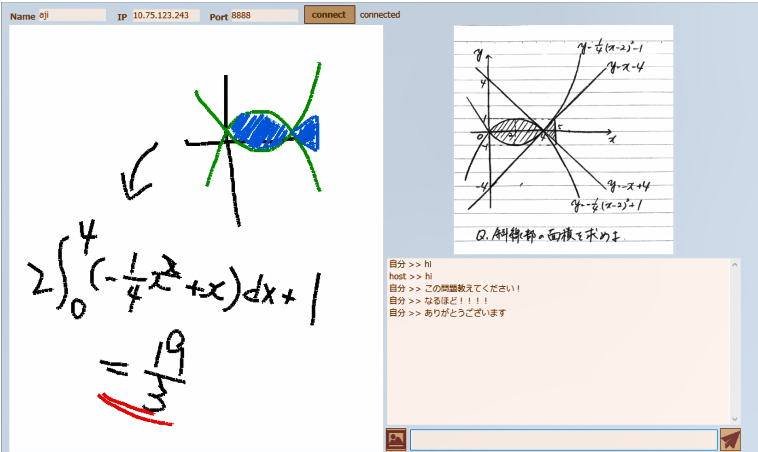 Name aji IP 10.75.123.243 Port 8888 connect connected
2∫₀⁴(-1/4x²+x)dx+1
=19/3
y=1/4(x-2)²-1
y=x-4
y
4
1
0
2
4
5
x
-1
-4
y=-x+4
y=-1/4(x-2)²+1
Q. 斜線部の面積を求めよ.
自分 >> hi
host >> hi
自分 >> この問題教えてください！
自分 >> なるほど！！！！
自分 >> ありがとうございます